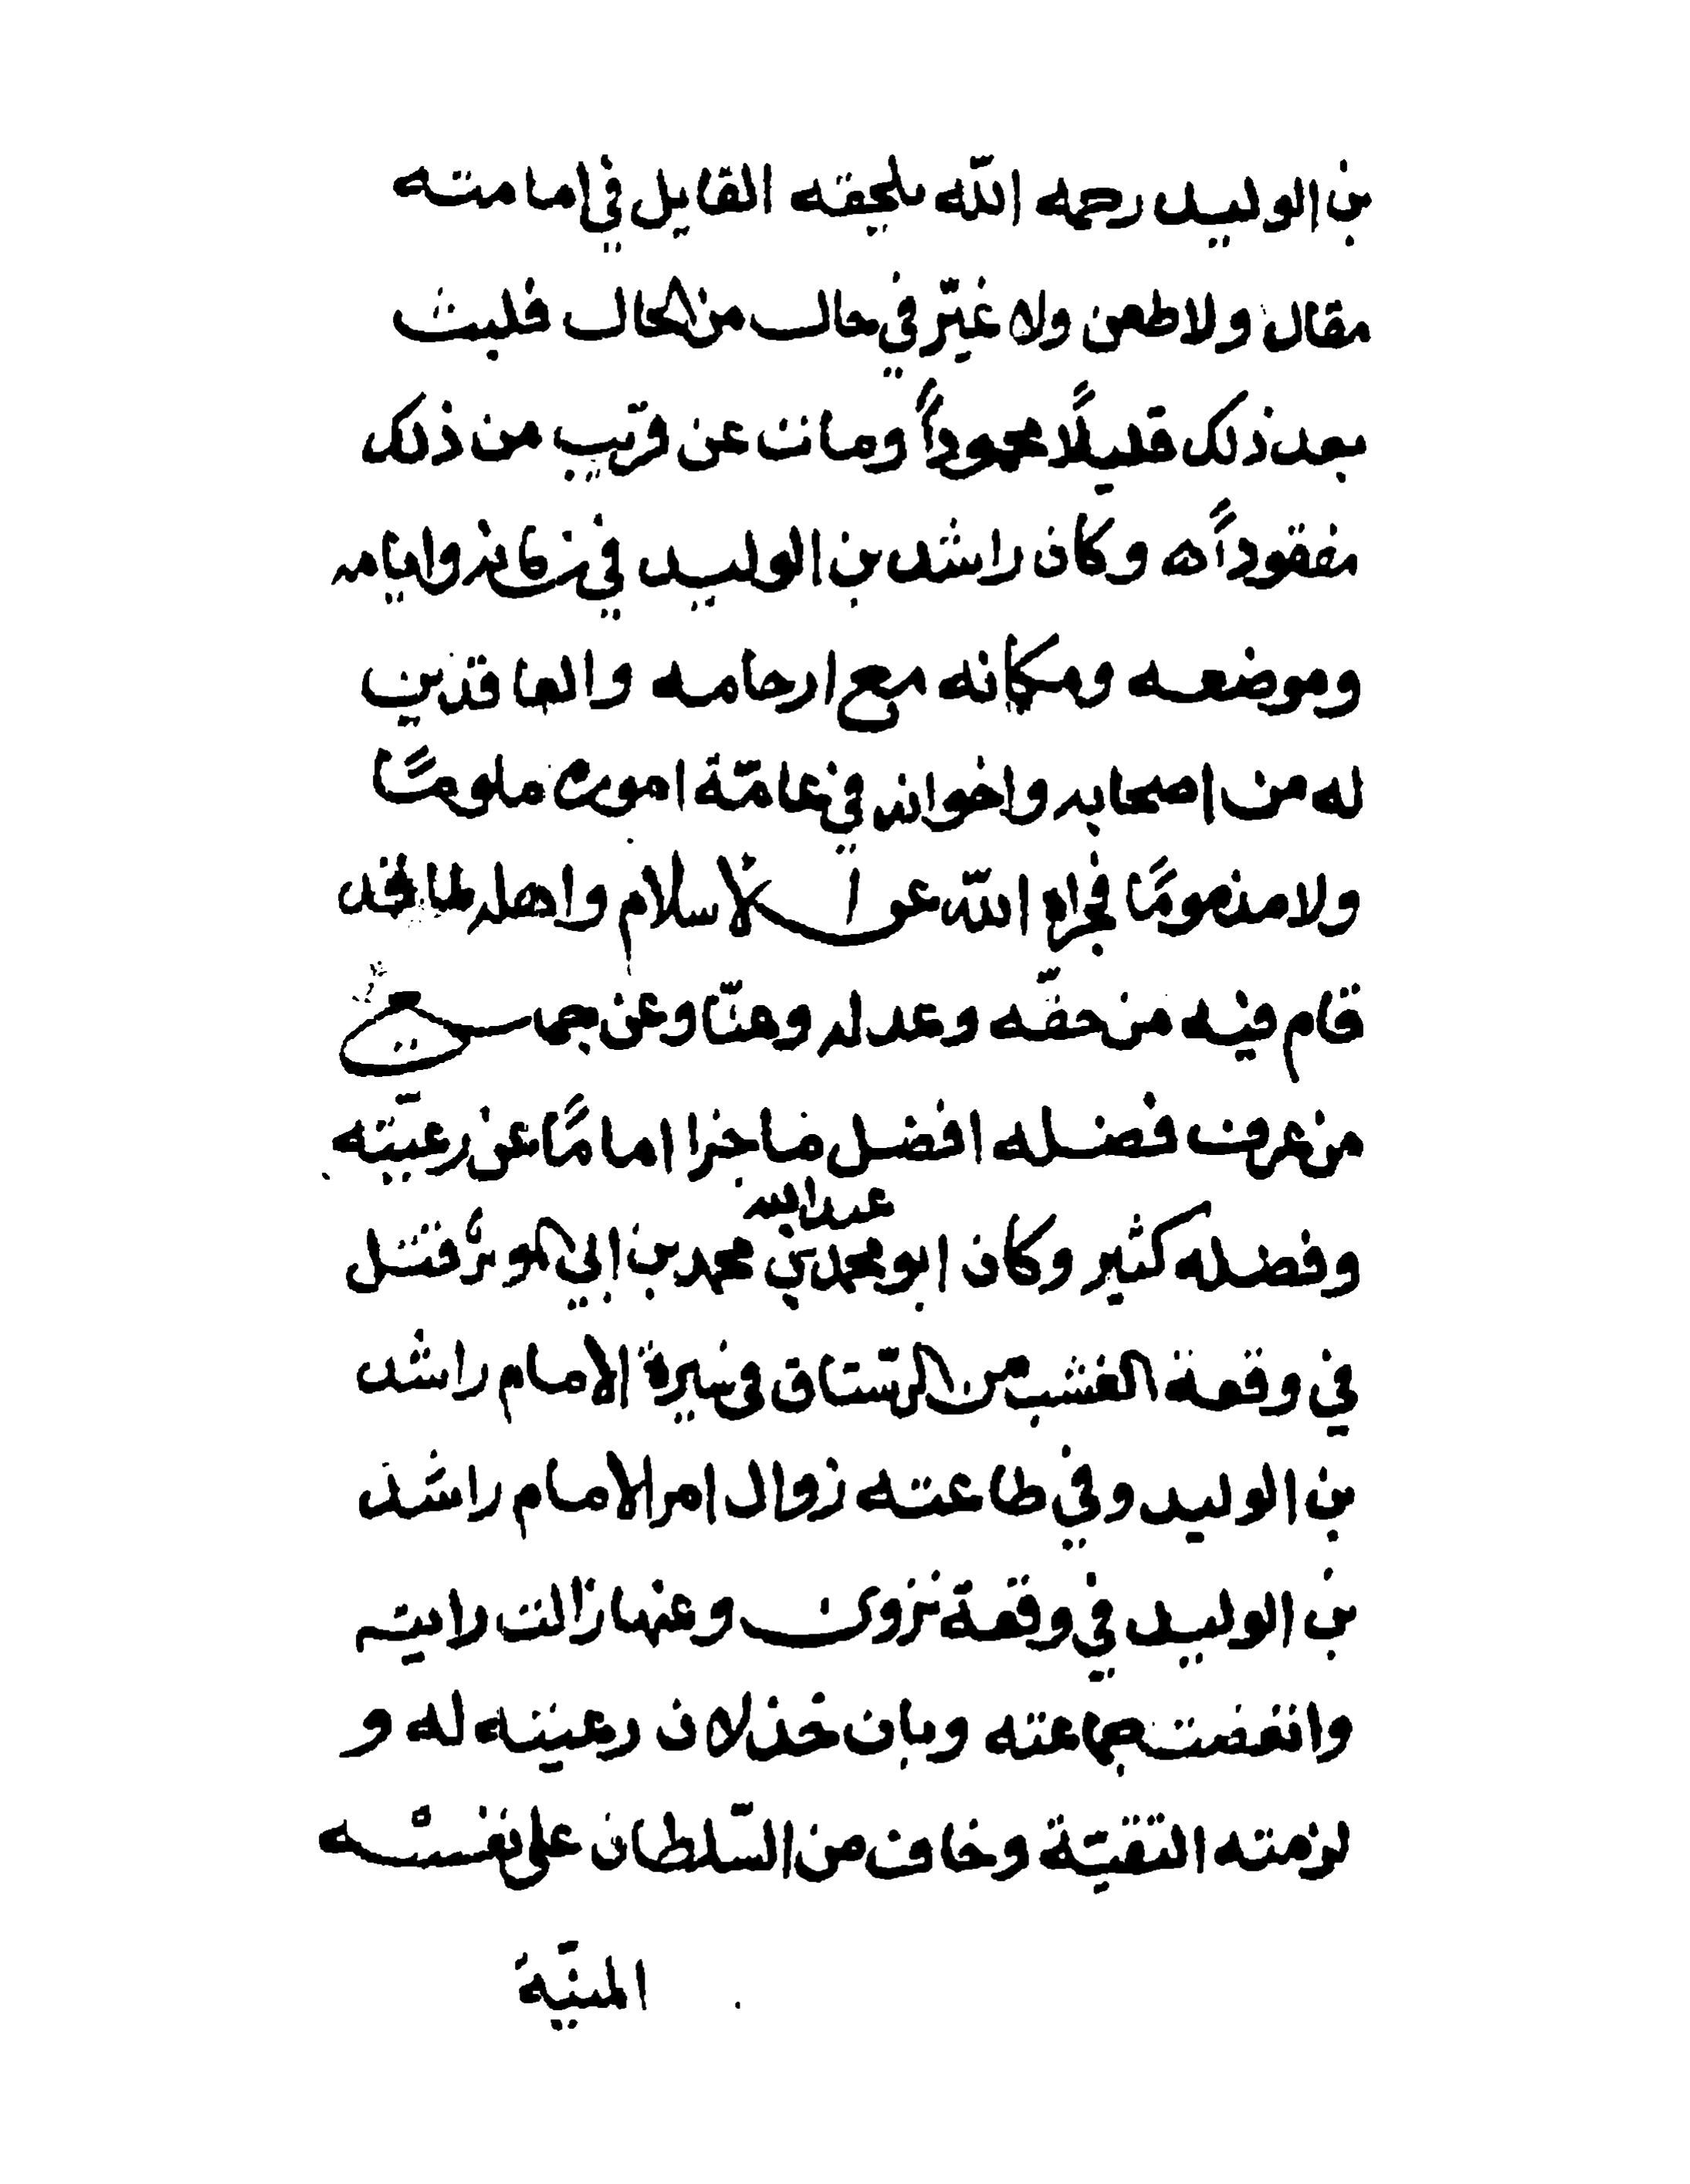 بن الوليد رحمه الله يلحقه القايل في امامته
مقال ولا طعن ولا غيّر في حال من الحال فلبث
بعد ذلك قليلًا محموداً ومات عن قريب من ذلك
مفقوداً ه وكان راشد بن الوليد في زمانه وايامه
وموضعه ومكانه مع ارحامه والعاقدين
له من اصحابه واخوانه في عامّة اموره ملومًا
ولا مذمومًا فجزاه الله عن الاسلام واهله لما قد
قام فيه من حقّه وعدله وعنّا وعن جميع
من عرف فضله افضل ما جزا امامًا عن رعيّته
وفضله كثير وكان ابو محمد عبدالله بن محمد بن ابي المؤثر قتل
في وقعة الغشب من الرستاق في سيرة الامام راشد
بن الوليد وفي طاعته زوال امر الامام راشد
بن الوليد في وقعة نزوى وعنها زالت رايته
وانفضت جماعته وبان خذلان رعيته له و
لزمته التقيّة وخاف من السّلطان على نفسه
المنيّة